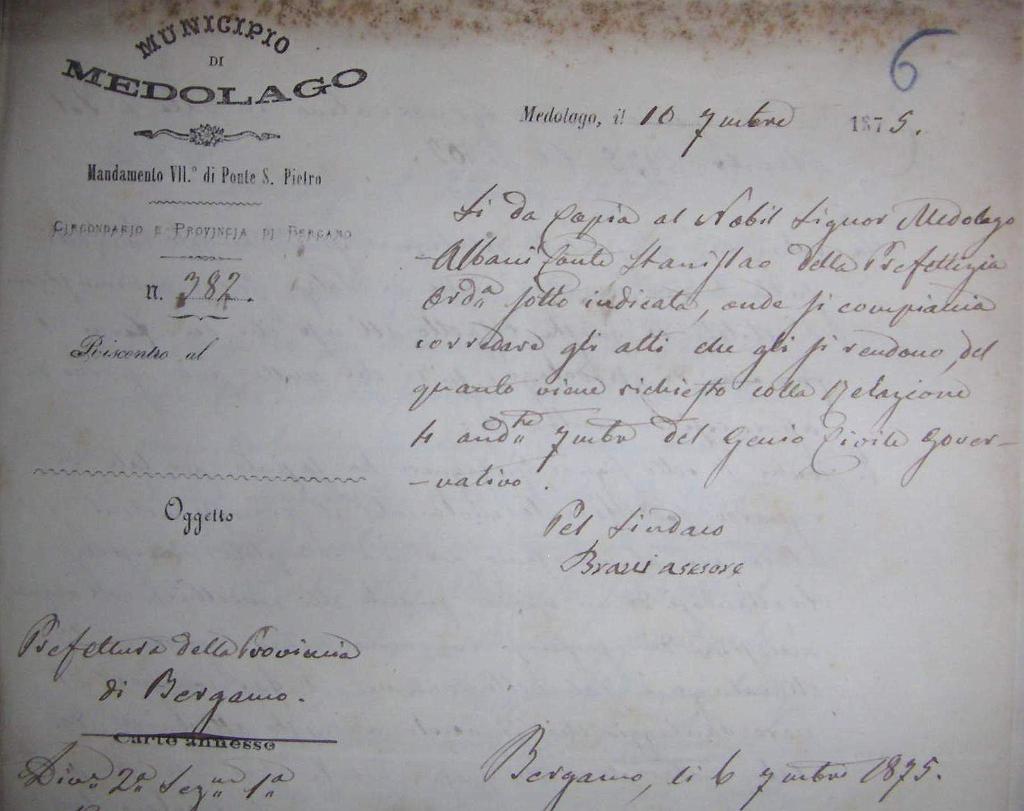 MUNICIPIO
DI
MEDOLAGO
Mandamento VII.° di Ponte S. Pietro
CIRCONDARIO E PROVINCIA DI BERGAMO
n. 382.
Riscontro al
Oggetto
6
Medolago, il 10 7mbre 1875.
Si da Copia al Nobil Signor Medolago
Albani Conte Stanislao della Prefettizia
Ord.a sotto indicata, onde si compiacia
corredare gli atti che gli si rendono, del
quanto viene richiesto colla Relazione
4 and.te 7mbre del Genio Civile Gover-
-nativo.
Pel Sindaco
asesore
Prefettura della Provincia
di Bergamo.
Carte annesse
Div.e 2.a Sez.ne 1.a
Bergamo, li 6 7mbre 1875.